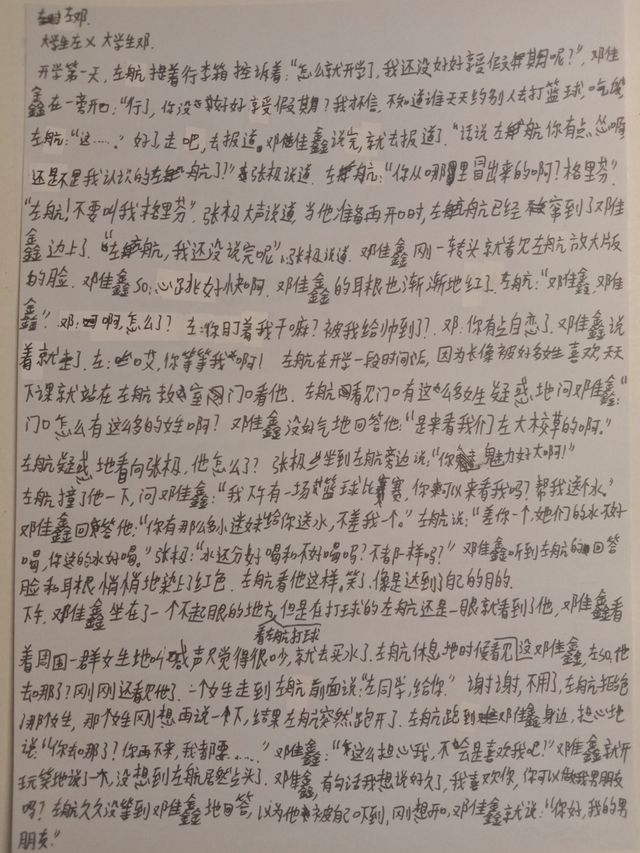 左邓.
大学生左×大学生邓.
开学第一天,左航提着行李箱控诉着:"怎么就开学了,我还没好好享受假期呢?",邓佳
鑫在一旁开口:"行了,你没好好享受假期?我不信,不知道谁天天约别人去打篮球,吃
左航:"这……"好了走吧,去报道。邓佳鑫说完,就去报道了."话说左航你有点怂啊
还是不是我认识的左航了?"张极说道.左航:"你从哪里冒出来的啊?格里芬".
"左航!不要叫我格里芬".张极大声说道,当他准备再开口时,左航已经窜到了邓佳
鑫边上了."左航,我还没说完呢",张极说道.邓佳鑫刚一转头就看见左航放大版
的脸.邓佳鑫so:心跳好快啊.邓佳鑫的耳根也渐渐地红了.左航:"邓佳鑫,邓佳
鑫".邓:啊,怎么了?左:你盯着我干嘛?被我给帅到了?邓:你有点自恋了.邓佳鑫说
着就走了.左:哎,你等等我啊!左航在开学一段时间后,因为长像被好多女生喜欢天天
下课就站在左航教室门口看他.左航看见门口有这么多女生疑惑地问邓佳鑫:"
门口怎么有这么多的女生啊?邓佳鑫没好气地回答他:"是来看我们左大校草的啊."
左航疑惑地看向张极,他怎么了?张极坐到左航旁边说:"你魅力好大啊!"
左航撞了他一下,问邓佳鑫:"我下午有一场篮球比赛,你可以来看我吗?帮我送个水."
邓佳鑫回答他:"你有那么多小迷妹给你送水,不差我一个."左航说:"差你一个,她们的水不好
喝,你送的水好喝."张极:"水还分好喝和不好喝吗?不都一样吗?"邓佳鑫听到左航的回答
脸和耳根悄悄地染上了红色.左航看他这样,笑了,像是达到了自己的目的.
下午.邓佳鑫坐在了一个不起眼的地方,但是在打球的左航还是一眼就看到了他,邓佳鑫看
看左航打球
着周围一群女生地叫喊声只觉得很吵,就去买水了.左航休息地时候看见没邓佳鑫,左so,他
去哪了?刚刚还看见他了.一个女生走到左航前面说:"左同学,给你."谢谢,不用了,左航拒绝
那个女生,那个女生刚想再说一下,结果左航突然跑开了.左航跑到邓佳鑫身边,担心地
说:"你去哪了?你再不来,我都要……"邓佳鑫:"这么担心我,不会是喜欢我吧!"邓佳鑫就开
玩笑地说了一下,没想到左航居然点头了.邓佳鑫,有句话我想说好久了,我喜欢你,你可以做我男朋友
吗?左航久久没等到邓佳鑫地回答,以为他被自己吓到,刚想开口,邓佳鑫就说:"你好,我的男
朋友."